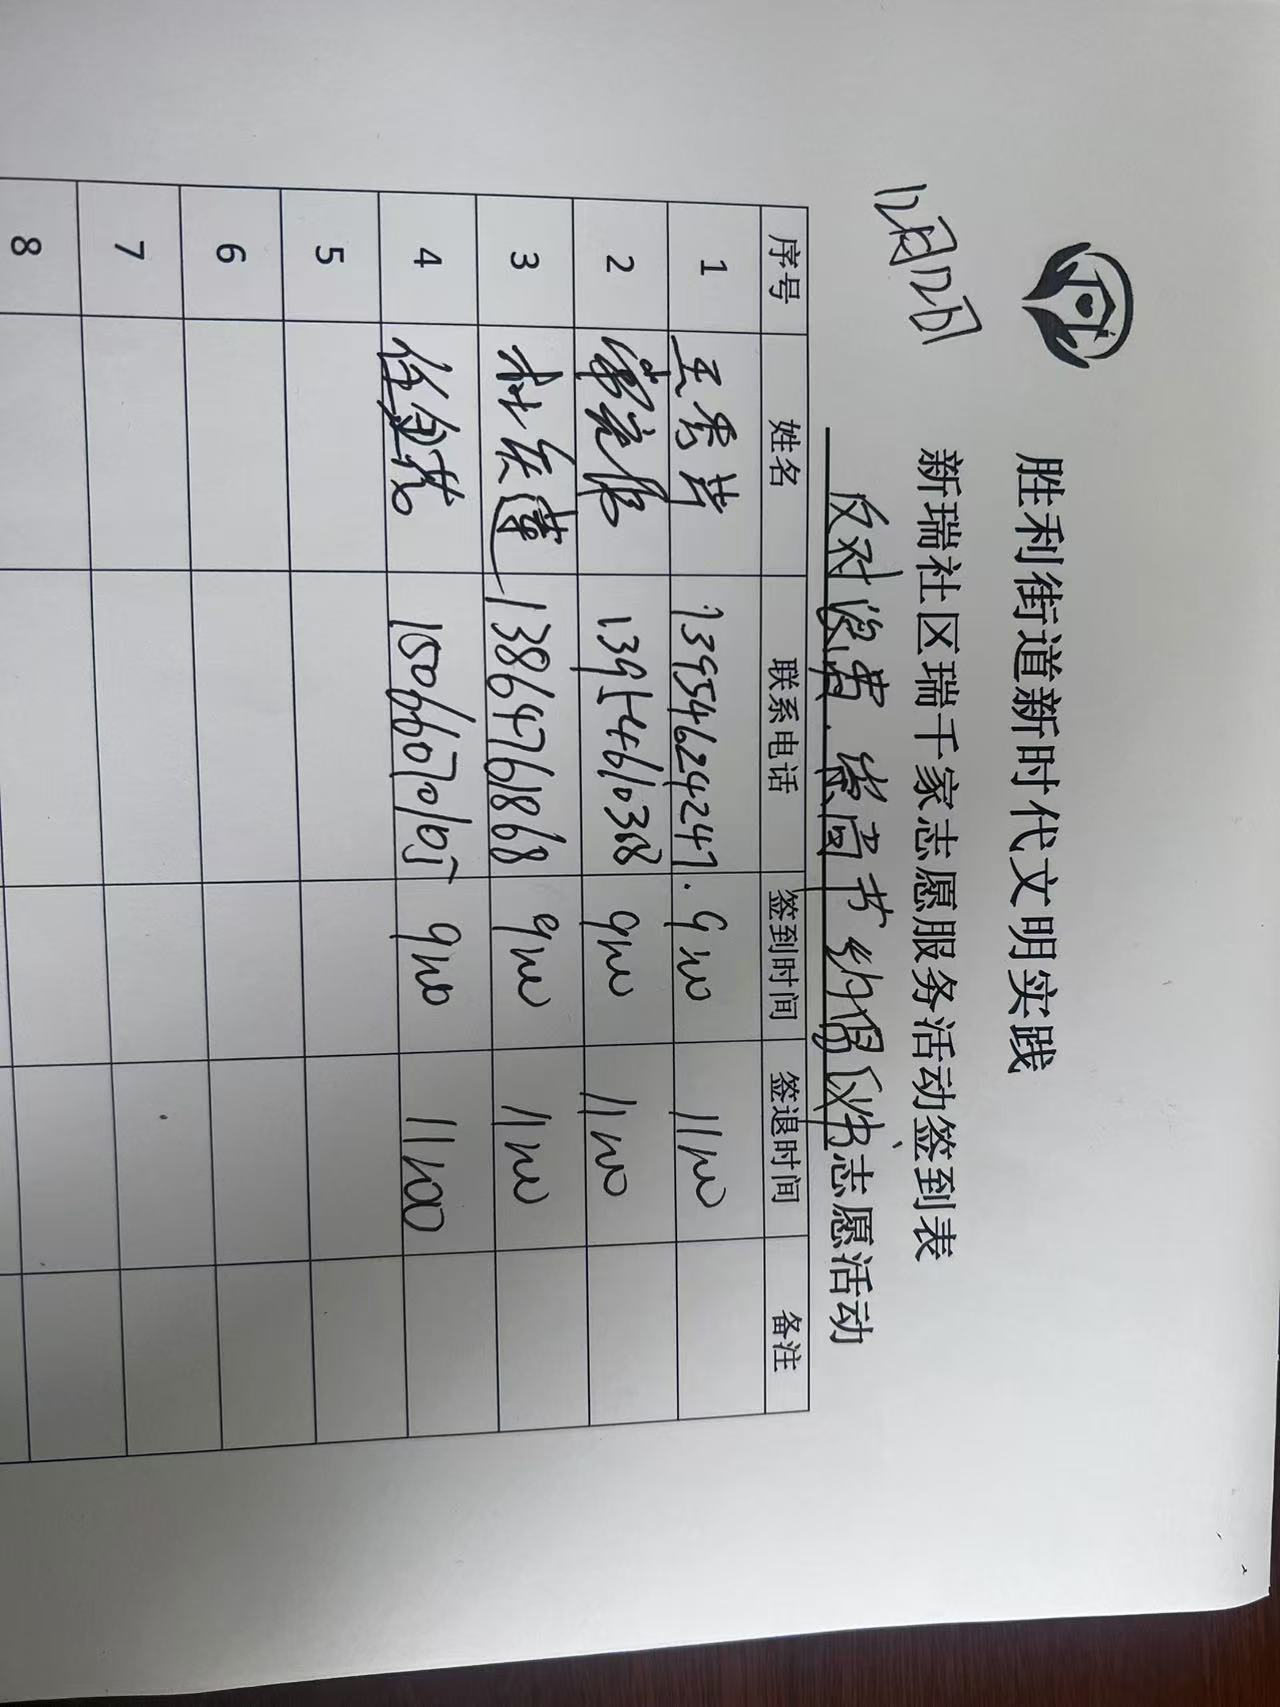 胜利街道新时代文明实践
新瑞社区瑞千家志愿服务活动签到表
12月12日
反对浪费.崇尚节约倡议书志愿活动
序号 姓名 联系电话 签到时间 签退时间 备注
1 王秀芳 13954624247. 9:00 11:00
2 13954610388 9:00 11:00
3 杜庆莲 13864761868 9:00 11:00
4 徐金花 15066070105 9:00 11:00
5
6
7
8